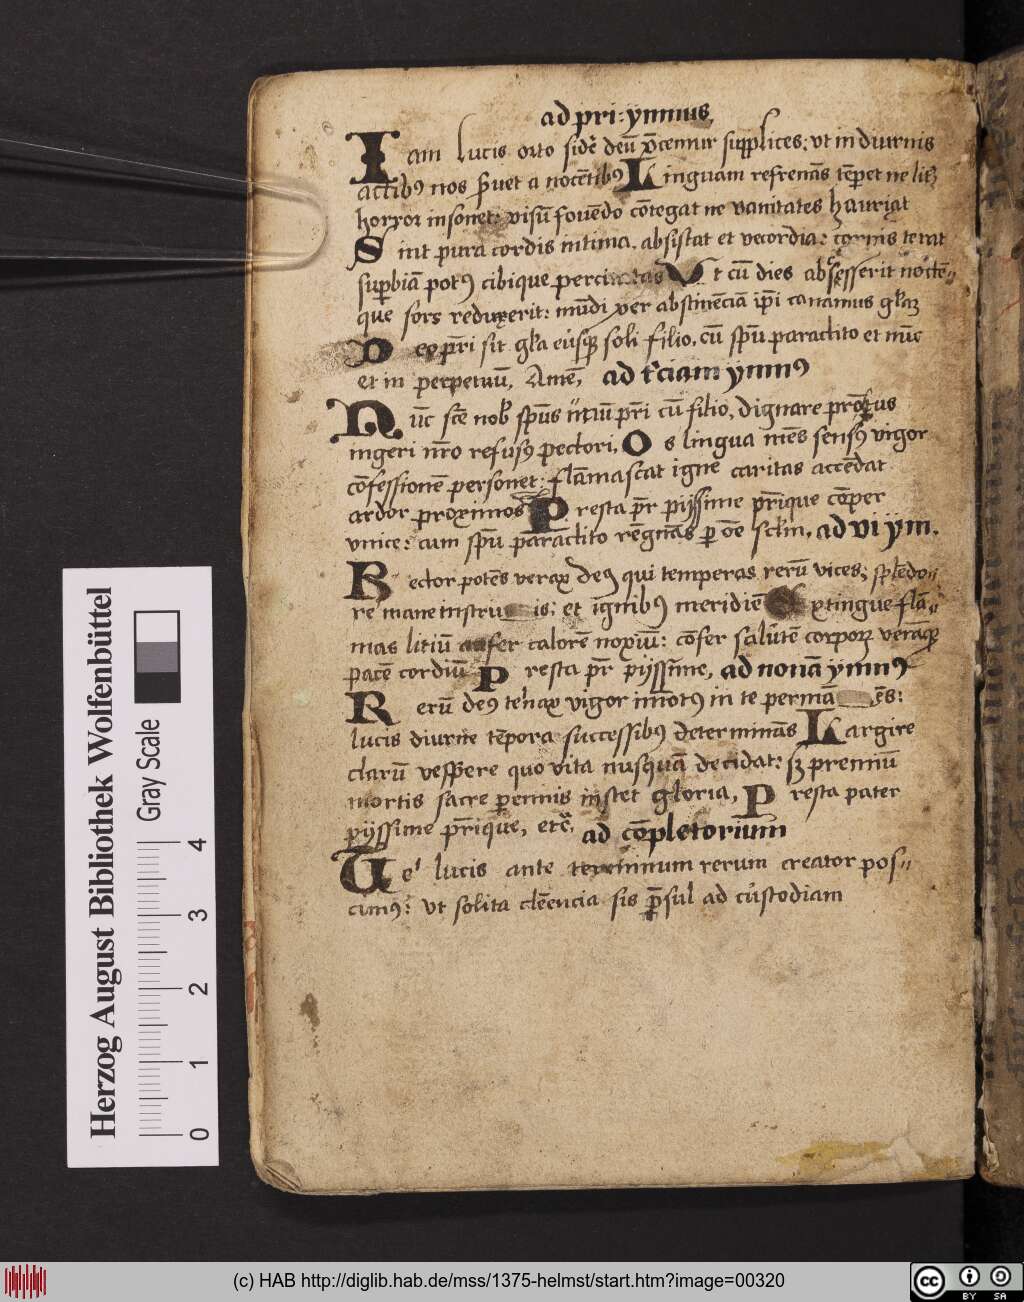 ad pri: ymnus
Iam lucis orto sidē deū p̄cemur supplices: vt in diurnis
actibꝰ nos s̄uet a nocētibꝰ Linguam refrenās tēꝑet ne litꝭ
horror insonet: visū fouēdo cōtegat ne vanitates hauriat
Sint pura cordis intima, absistat et vecordia: carnis terat
suꝑbiā potꝰ cibique Vt cū dies abscesserit noctē
que sors reduxerit: mūdi per abstinēciā ip̄i canamus gl̄aꝫ
Deo pr̄i sit gl̄a eiusqꝫ soli filio, cū sp̄u paraclito et nūc
et in perpetuū, Amē, ad t̄ciam ymnꝰ
Nūc sc̄e nob̄ sp̄us vnū pr̄i cū filio, dignare
ingeri nr̄o refusꝰ pectori, Os lingua mēs sensꝰ vigor
cōfessionē personet: flāmascat igne caritas accēdat
ardor proximos Presta pr̄r pijssime pr̄ique cōper
vnice: cum sp̄u paraclito rēgnās ꝑ ōē sc̄lm, ad vi ym.
Rector potēs verax deꝰ qui temperas rerū vices; splēdo
re mane instruis: et ignibꝰ meridiē Extingue flā
mas litiū aufer calorē noxiū: cōfer salutē corporꝫ verāqꝫ
pacē cordiū Presta pr̄r pijssīme, ad nonā ymnꝰ
Rerū deꝰ tenax vigor īmotꝰ in te permā ēs:
lucis diurne tēpora successibꝰ determinās Largire
clarū vespere quo vita nusquā decidat: sꝫ premiū
mortis sacre ꝑennis instet gloria, Presta pater
pijssime pr̄ique, etc̄, ad cōpletorium
Te lucis ante terminum rerum creator pos
cimꝰ: vt solita clēencia sis p̄sul ad custodiam
Herzog August Bibliothek Wolfenbüttel
Gray Scale
0 1 2 3 4
(c) HAB http://diglib.hab.de/mss/1375-helmst/start.htm?image=00320
cc BY SA